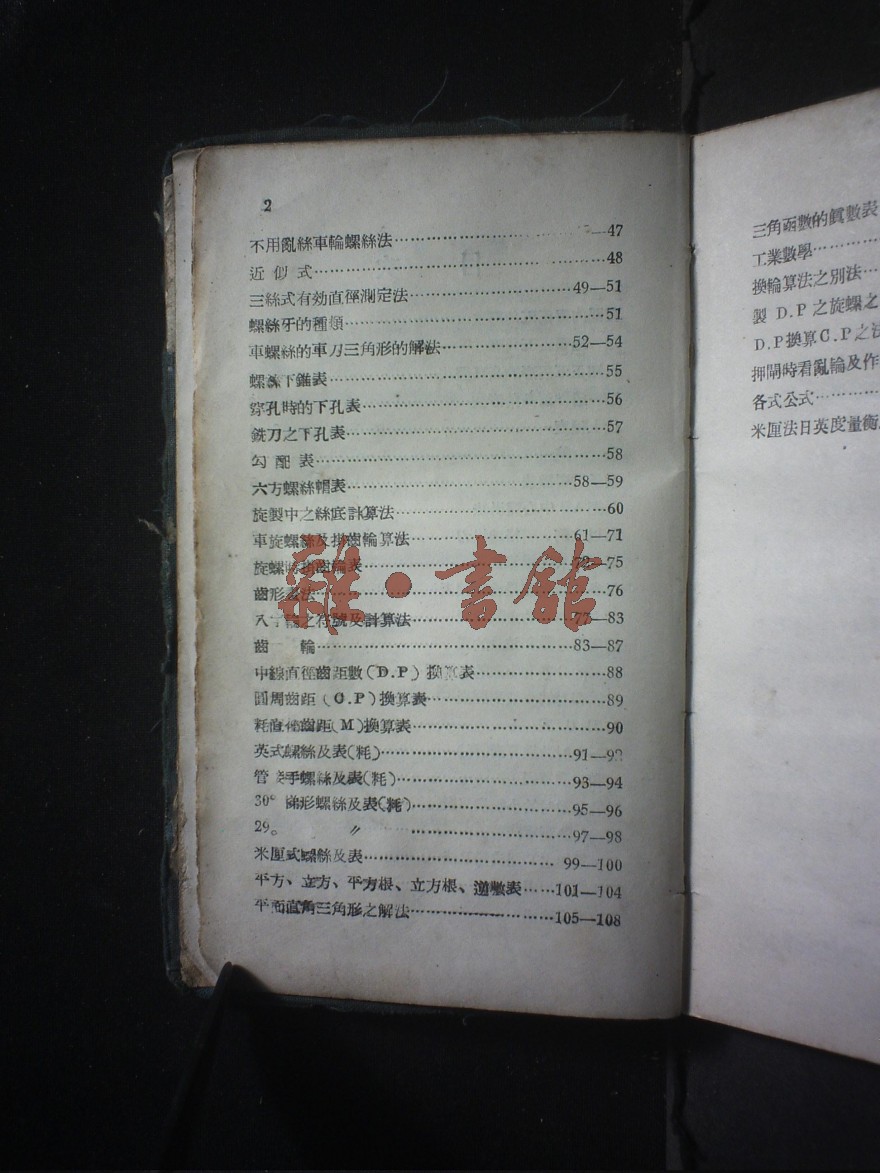 2
不用亂絲車輪螺絲法……—47
近似式……48
三絲式有効直徑測定法……49—51
螺絲牙的種類……51
車螺絲的車刀三角形的解法……52—54
螺絲下錐表……55
穿孔時的下孔表……56
銑刀之下孔表……57
勾配表……58
六方螺絲帽表……58—59
旋製中之絲底計算法……60
車旋螺絲及掛齒輪算法……61—71
旋螺絲掛齒輪表……72—75
齒形畫法……76
之符號及計算法……77—83
齒輪……83—87
中線直徑齒距數(D.P)換算表……88
圓周齒距(C.P)換算表……89
粍直徑齒距(M)換算表……90
英式螺絲及表(粍)……91—92
管接手螺絲及表(粍)……93—94
30° 梯形螺絲及表(粍)……95—96
29。 〃……97—98
米厘式螺絲及表……99—100
平方、立方、平方根、立方根、逆數表……101—104
平面直角三角形之解法……105—108
三角函數的眞數表
工業數學……
換輪算法之別法……
製 D.P 之旋螺之
D.P換算C.P之法
押閘時看亂輪及作
各式公式……
米厘法日英度量衡
雜·書館